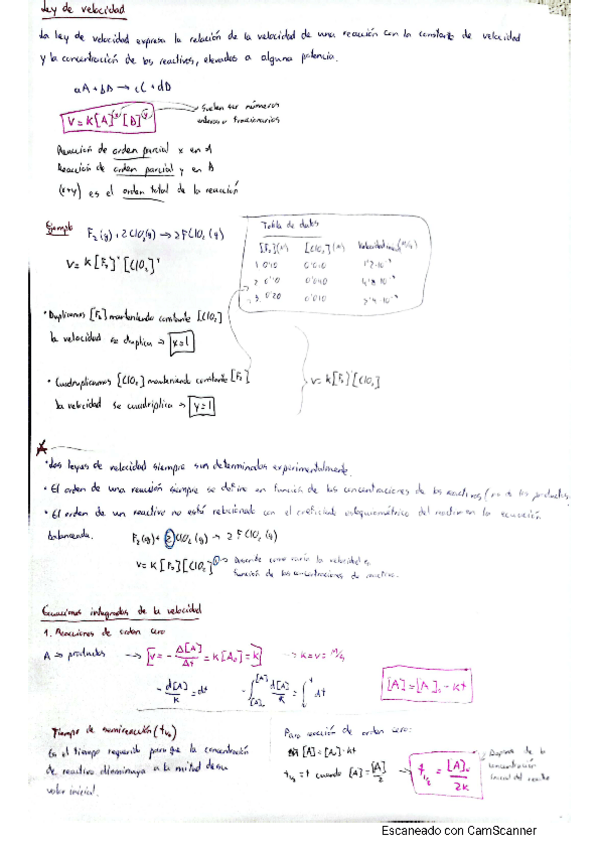 Ley de velocidad
La ley de velocidad expresa la relación de la velocidad de una reacción con la constante de velocidad
y la concentración de los reactivos, elevados a alguna potencia.
aA + bB → cC + dD
V = K[A]ˣ[B]ʸ
Suelen ser números
enteros o fraccionarios
Reacción de orden parcial x en A
Reacción de orden parcial y en B
(x+y) es el orden total de la reacción
Ejemplo F₂(g) + 2ClO₂(g) → 2FClO₂(g)
V = K[F₂]¹[ClO₂]¹
Tabla de datos
[F₂](M) [ClO₂](M)
1 0'10 0'010
2 0'10 0'040
3 0'20 0'010
• Duplicamos [F₂] manteniendo constante [ClO₂]
la velocidad se duplica → x=1
• Cuadruplicamos [ClO₂] manteniendo constante [F₂]
la velocidad se cuadriplica → y=1
V = K[F₂][ClO₂]
• Las leyes de velocidad siempre son determinadas experimentalmente.
• El orden de una reacción siempre se define en función de las concentraciones de los reactivos (no de los productos
• El orden de un reactivo no está relacionado con el coeficiente estequiométrico del reactivo en la ecuación
balanceada.
F₂(g) + 2ClO₂(g) → 2FClO₂(g)
V = K[F₂][ClO₂]¹ → Describe como varía la velocidad en
función de las concentraciones de reactivo.
Ecuaciones integradas de la velocidad
1. Reacciones de orden cero
A → productos → V = - Δ[A]/Δt = K[A₀] = K → K = V = M/s
- d[A]/K = dt - ∫ d[A]/K = ∫ dt
[A] = [A]₀ - Kt
Tiempo de semirreacción (t½)
Es el tiempo requerido para que la concentración
de reactivo disminuya a la mitad de su
valor inicial.
Para reacción de orden cero:
[A] = [A₀] - Kt
t½ = t cuando [A] = [A]/2 → t½ = [A]₀/2K
Depende de la
concentración
inicial del reactivo
Escaneado con CamScanner